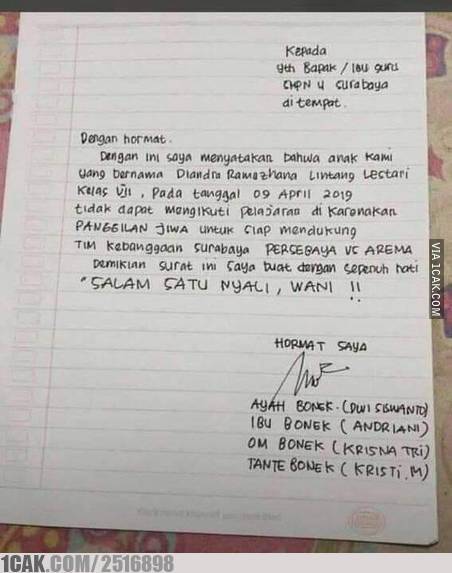 Kepada
yth Bapak / Ibu guru
SMPN 4 Surabaya
di tempat.
Dengan hormat.
Dengan ini saya menyatakan bahwa anak kami
yang bernama Diandra Ramazhana Lintang Lestari
Kelas VII, Pada tanggal 09 April 2019
tidak dapat mengikuti pelajaran di karenakan
PANGGILAN JIWA untuk siap mendukung
TIM Kebanggaan Surabaya PERSEBAYA VS AREMA
Demikian surat ini saya buat dengan sepenuh hati
"SALAM SATU NYALI, WANI !!
HORMAT SAYA
AYAH BONEK (DWI SISWANTO)
IBU BONEK (ANDRIANI)
OM BONEK (KRISNA TRI)
TANTE BONEK (KRISTI.M)
VIA 1CAK.COM
1CAK.COM/2516898